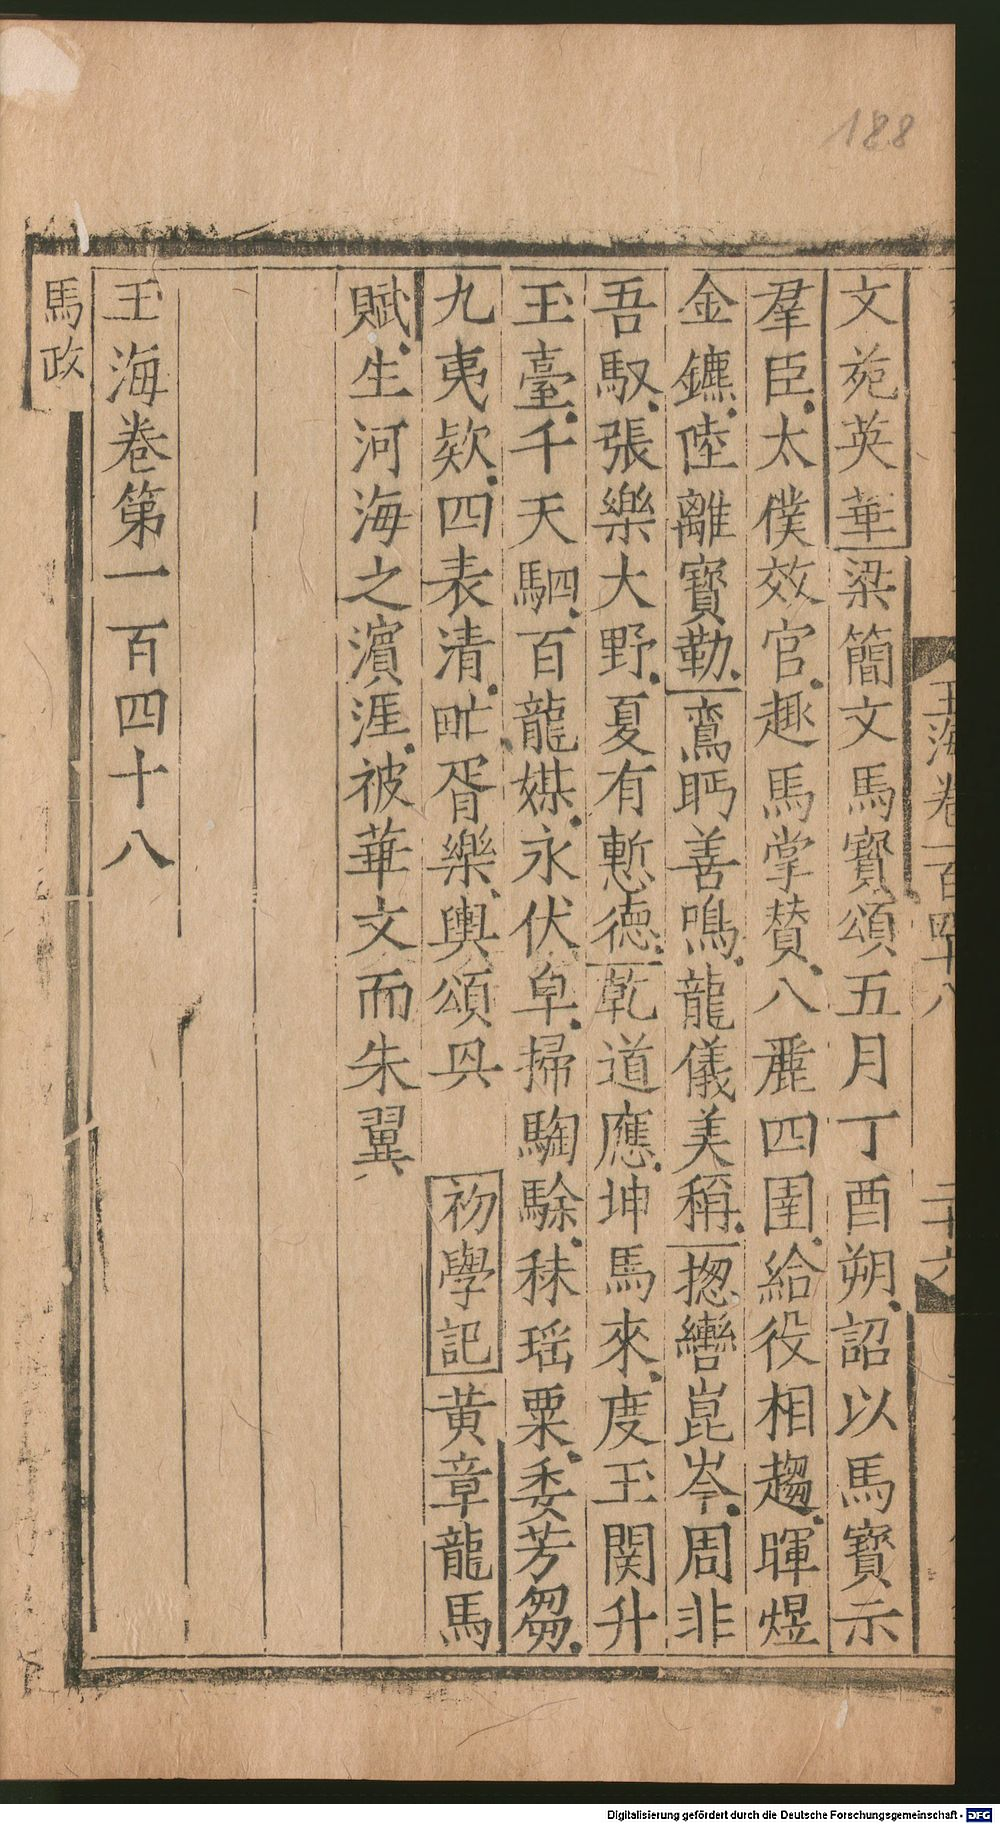 188
玉海卷一百四十八 二十六
文苑英華梁簡文馬寶頌五月丁酉朔詔以馬寶示
羣臣太僕效官趣馬掌贊八麗四圉給役相趨暉煜
金鑣陸離寶勒鸞眄善鳴龍儀美稱揔轡崑岑周非
吾馭張樂大野夏有慙德乾道應坤馬來度玉関升
玉臺千天駟百龍媒永伏皁掃騊駼秣瑶粟委芳芻
九夷欵四表清甿胥樂輿頌興 初學記黄章龍馬
賦生河海之濵涯被華文而朱翼
玉海卷第一百四十八
馬政
Digitalisierung gefördert durch die Deutsche Forschungsgemeinschaft - DFG